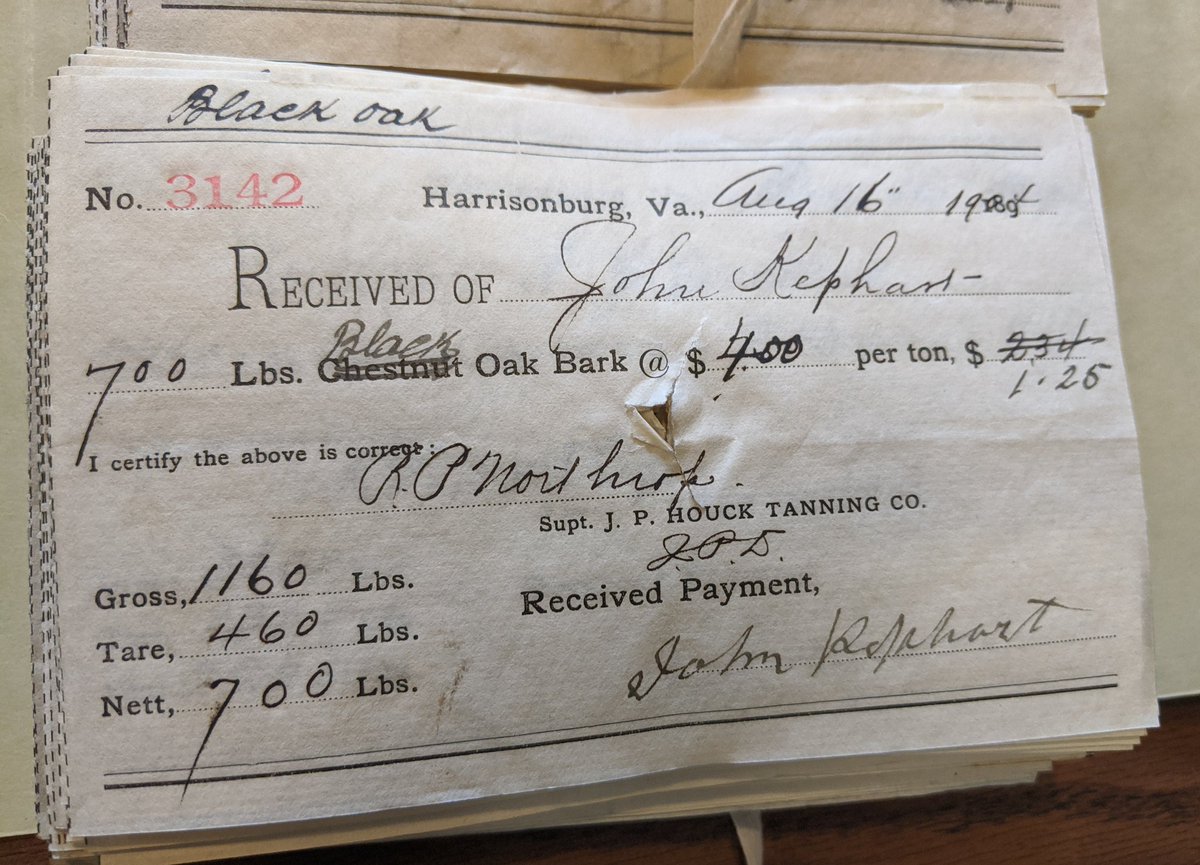 Black oak
No. 3142 Harrisonburg, Va., Aug 16" 1904
RECEIVED OF John Kephart
700 Lbs. Black Chestnut Oak Bark @ $ 4.00 per ton, $ 2.34
1.25
I certify the above is correct:
R. P Northrop.
Supt. J. P. HOUCK TANNING CO.
Gross, 1160 Lbs. Received Payment,
Tare, 460 Lbs. John Kephart
Nett, 700 Lbs.